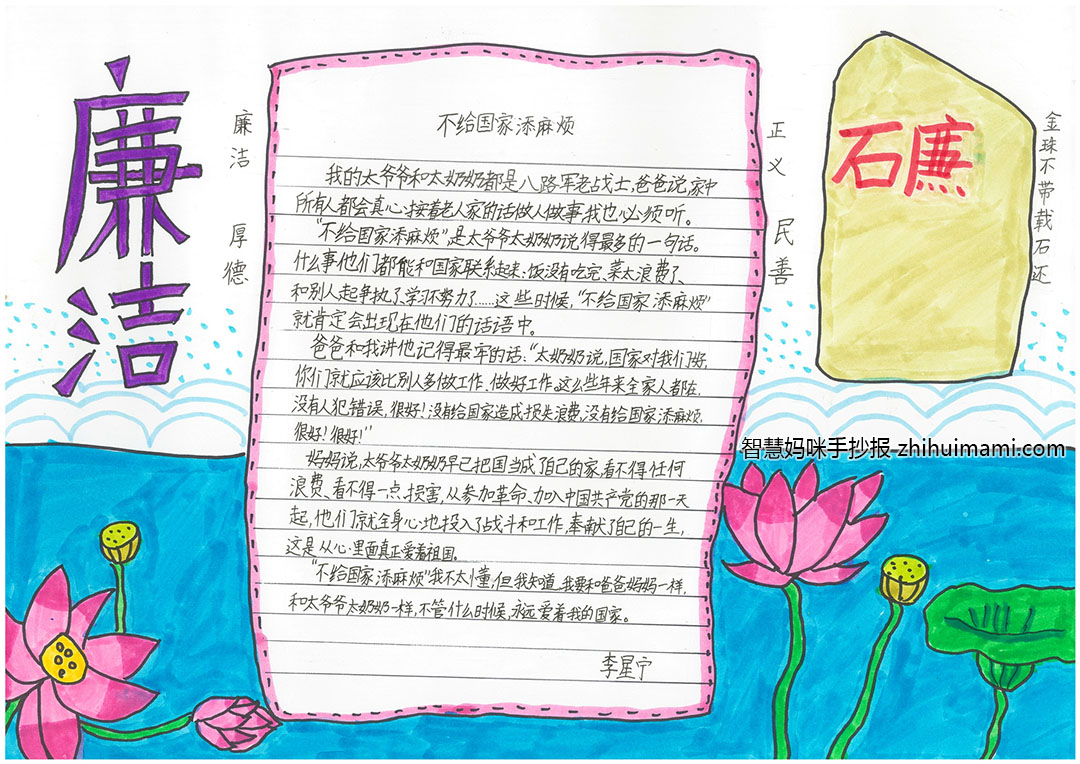 廉洁
廉洁 厚德
不给国家添麻烦
我的太爷爷和太奶奶都是八路军老战士,爸爸说,家中
所有人都会真心接着老人家的话做人做事,我也必须听。
“不给国家添麻烦”,是太爷爷太奶奶说得最多的一句话。
什么事他们都能和国家联系起来:饭没有吃完、菜太浪费了、
和别人起争执了、学习不努力了……这些时候,“不给国家添麻烦”
就肯定会出现在他们的话语中。
爸爸和我讲他记得最牢的话:“太奶奶说,国家对我们好,
你们就应该比别人多做工作、做好工作。这么些年来全家人都在,
没有人犯错误,很好!没有给国家造成损失浪费,没有给国家添麻烦,
很好!很好!”
妈妈说,太爷爷太奶奶早已把国当成了自己的家,看不得任何
浪费、看不得一点损害,从参加革命、加入中国共产党的那一天
起,他们就全身心地投入了战斗和工作,奉献了自己的一生,
这是从心里面真正爱着祖国。
“不给国家添麻烦”我不太懂,但我知道,我要和爸爸妈妈一样,
和太爷爷太奶奶一样,不管什么时候,永远爱着我的国家。
李星宁
正义 民善
石
金珠不带载石还
智慧妈咪手抄报-zhihuimami.com